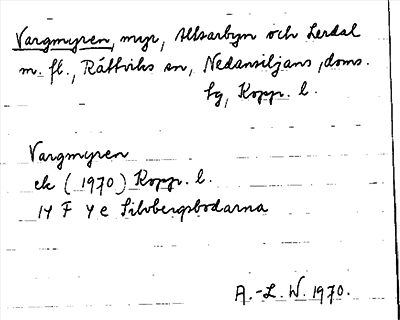 Vargmyren, myr, Altsarbyn och Lerdal
m. fl., Rättviks sn, Nedansiljans doms.
hg, Kopp. l.
Vargmyren
ek (1970) Kopp. l.
14 F 4 e Silvbergsbodarna
A.-L. W. 1970.